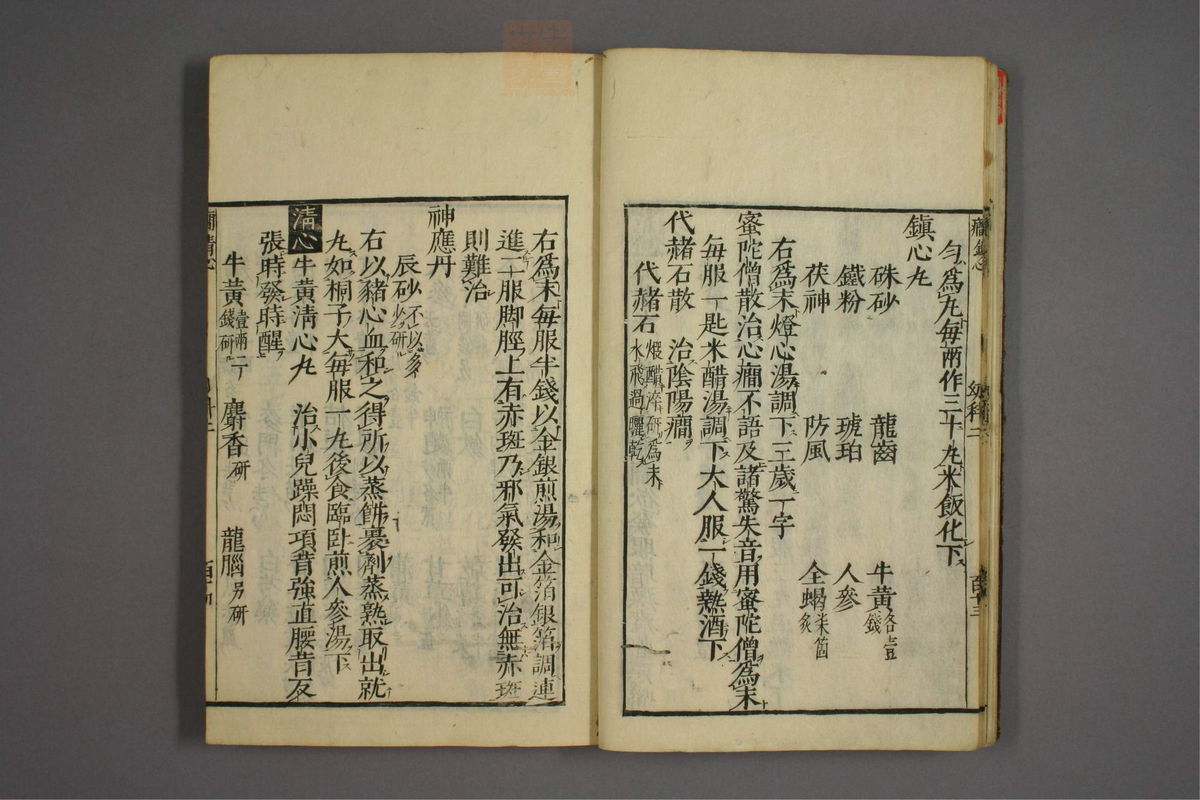 癇鎮心
幼科二
百十三
勻爲丸每兩作三十丸米飯化下
鎮心丸
硃砂 龍齒 牛黃各壹錢
鐵粉 琥珀 人參
茯神 防風 全蝎柒箇炙
右爲末燈心湯調下三歲一字
蜜陀僧散治心癇不語及諸驚失音用蜜陀僧爲末
每服一匙米醋湯調下大人服一錢熱酒下
代赭石散 治陰陽癇
代赭石煅醋淬研爲末水飛過曬乾
右爲末每服半錢以金銀煎湯和金箔銀箔調連
進二服脚脛上有赤斑乃邪氣發出可治無赤斑
則難治
神應丹
辰砂不以多少研
右以豬心血和之得所以蒸餠裹劑蒸熟取出就
丸如桐子大每服一丸後食臨臥煎人參湯下
清心牛黃清心丸 治小兒躁悶項背強直腰背反
張時發時醒
牛黃壹兩二錢研 麝香研 龍腦另研